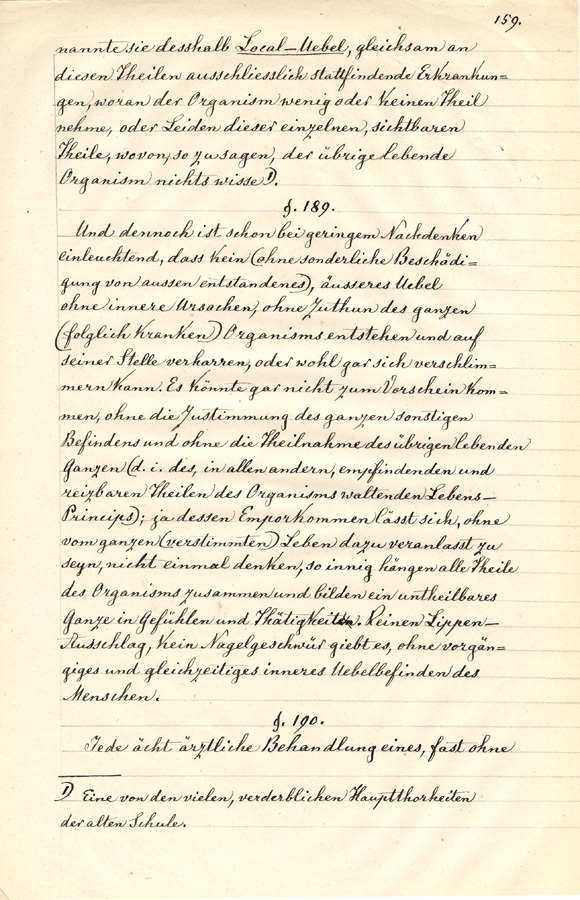 159.
nannte sie desshalb Local-Uebel, gleichsam an
diesen Theilen ausschliesslich stattfindende Erkrankun=
gen, woran der Organism wenig oder keinen Theil
nehme, oder Leiden dieser einzelnen, sichtbaren
Theile, wovon, so zu sagen, der übrige lebende
Organism nichts wisse 1).
§. 189.
Und dennoch ist schon bei geringem Nachdenken
einleuchtend, dass kein (ohne sonderliche Beschädi=
gung von aussen entstandenes), äusseres Uebel
ohne innere Ursachen, ohne Zuthun des ganzen
(folglich kranken) Organisms entstehen und auf
seiner Stelle verharren, oder wohl gar sich verschlim=
mern kann. Es könnte gar nicht zum Vorschein kom=
men, ohne die Zustimmung des ganzen sonstigen
Befindens und ohne die Theilnahme des übrigen lebenden
Ganzen (d. i. des, in allen andern, empfindenden und
reizbaren Theilen des Organisms waltenden Lebens-
Princips); ja dessen Emporkommen lässt sich, ohne
vom ganzen (verstimmten) Leben dazu veranlasst zu
seyn, nicht einmal denken, so innig hängen alle Theile
des Organisms zusammen und bilden ein untheilbares
Ganze in Gefühlen und Thätigkeit. Keinen Lippen-
Ausschlag, kein Nagelgeschwür giebt es, ohne vorgän=
giges und gleichzeitiges inneres Uebelbefinden des
Menschen.
§. 190.
Jede ächt ärztliche Behandlung eines, fast ohne
1) Eine von den vielen, verderblichen Hauptthorheiten
der alten Schule.